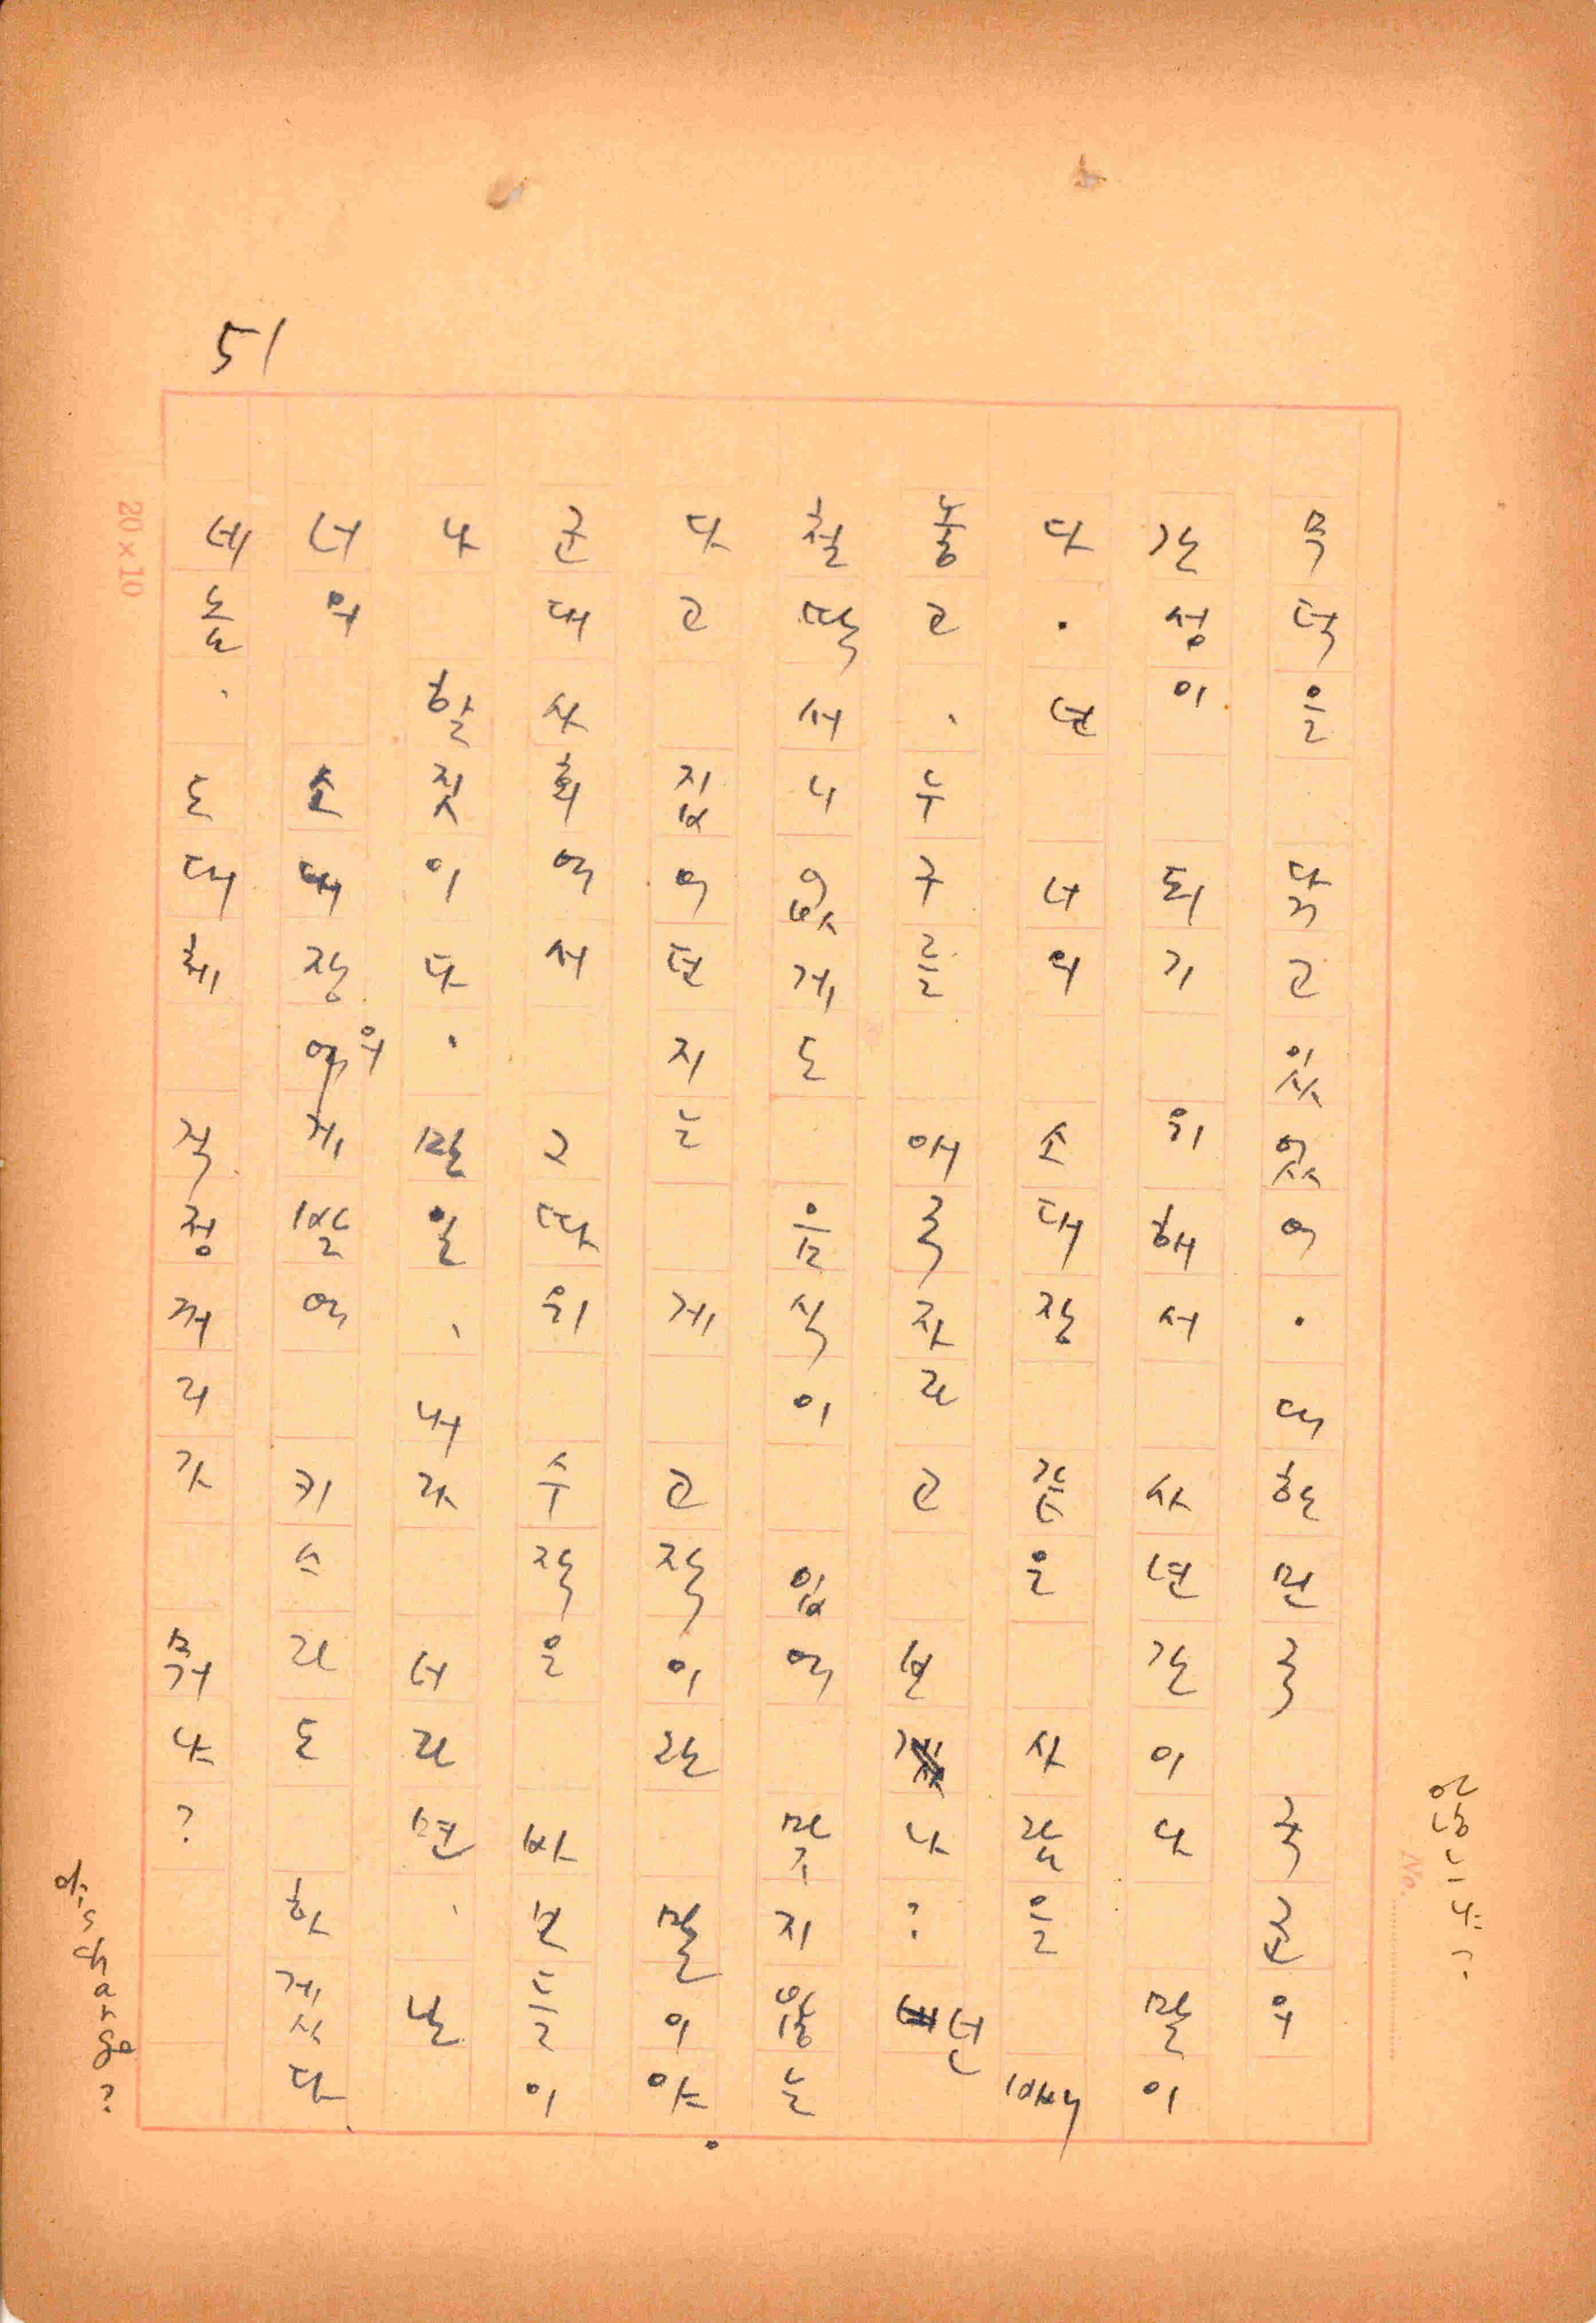 51
무덕을 닦고 있었어. 대한민국 국군의
간성이 되기 위해서 사년간이나 말이
다. 넌 너의 소대장 같은 사람을 빼
놓고, 누구를 애국자라고 보나? 넌
철딱서니없게도 음식이 입에 맞지 않는
다고 집어던지는 게 고작이란 말이야.
군대사회에서 그따위 수작은 바보들이
나 할 짓이다. 만일, 내가 너라면, 난
너의 소대장의 게 발에 키스라도 하겠다.
네놈, 도대체 걱정꺼리가 뭐냐?
20×10
No.